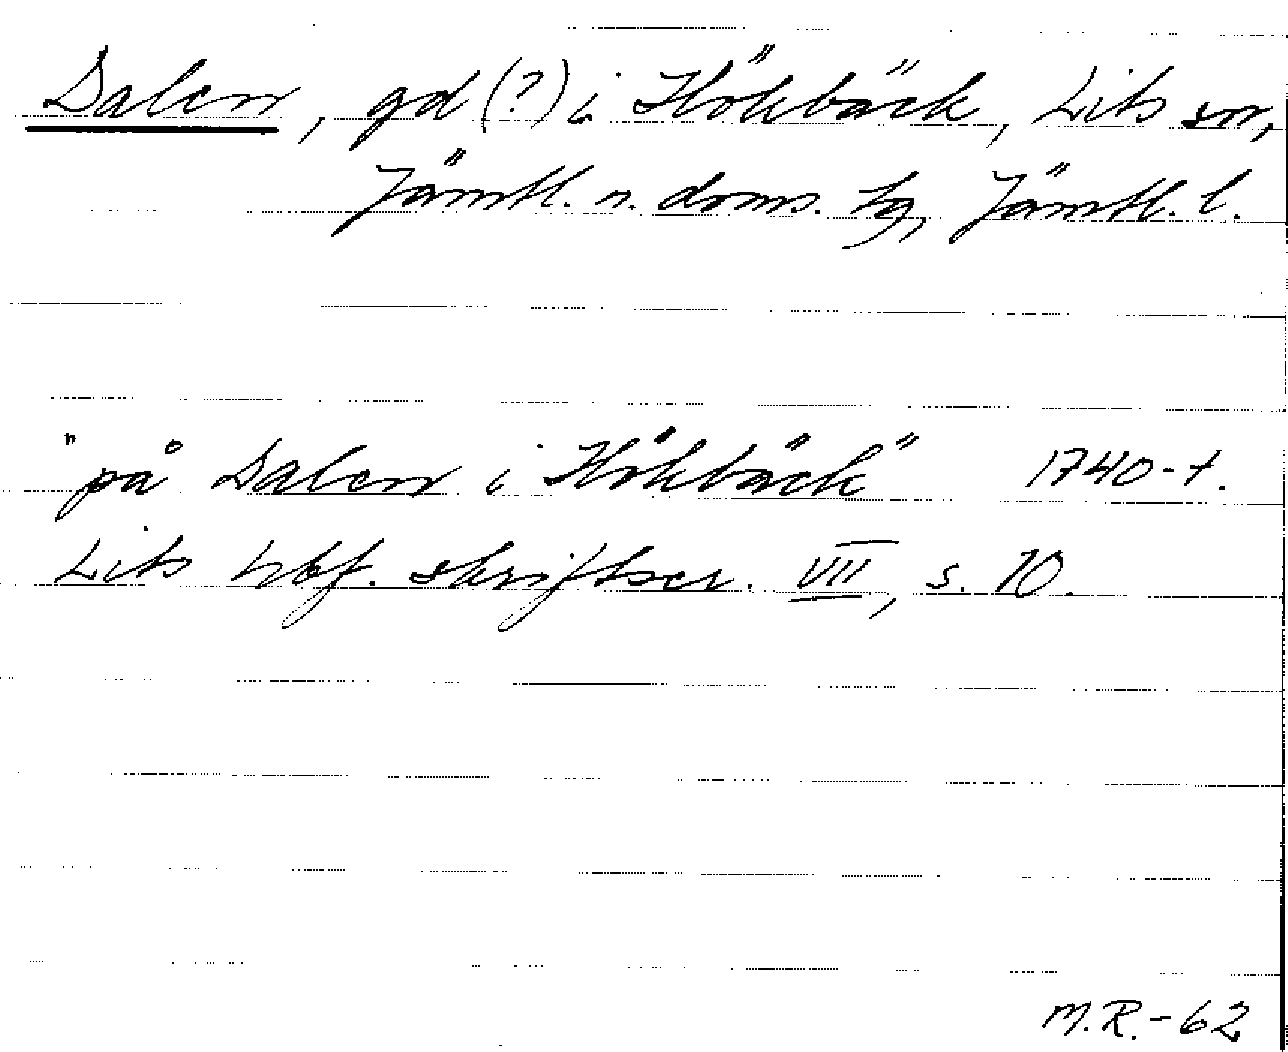 Dalen, gd (?) i Hökbäck, Lits sn,
Jämtl. n. doms. tg, Jämtl. l.
"på Dalen i Hökbäck" 1740-t.
Lits hbf. skriftser. VII, s. 10.
M.R.-62